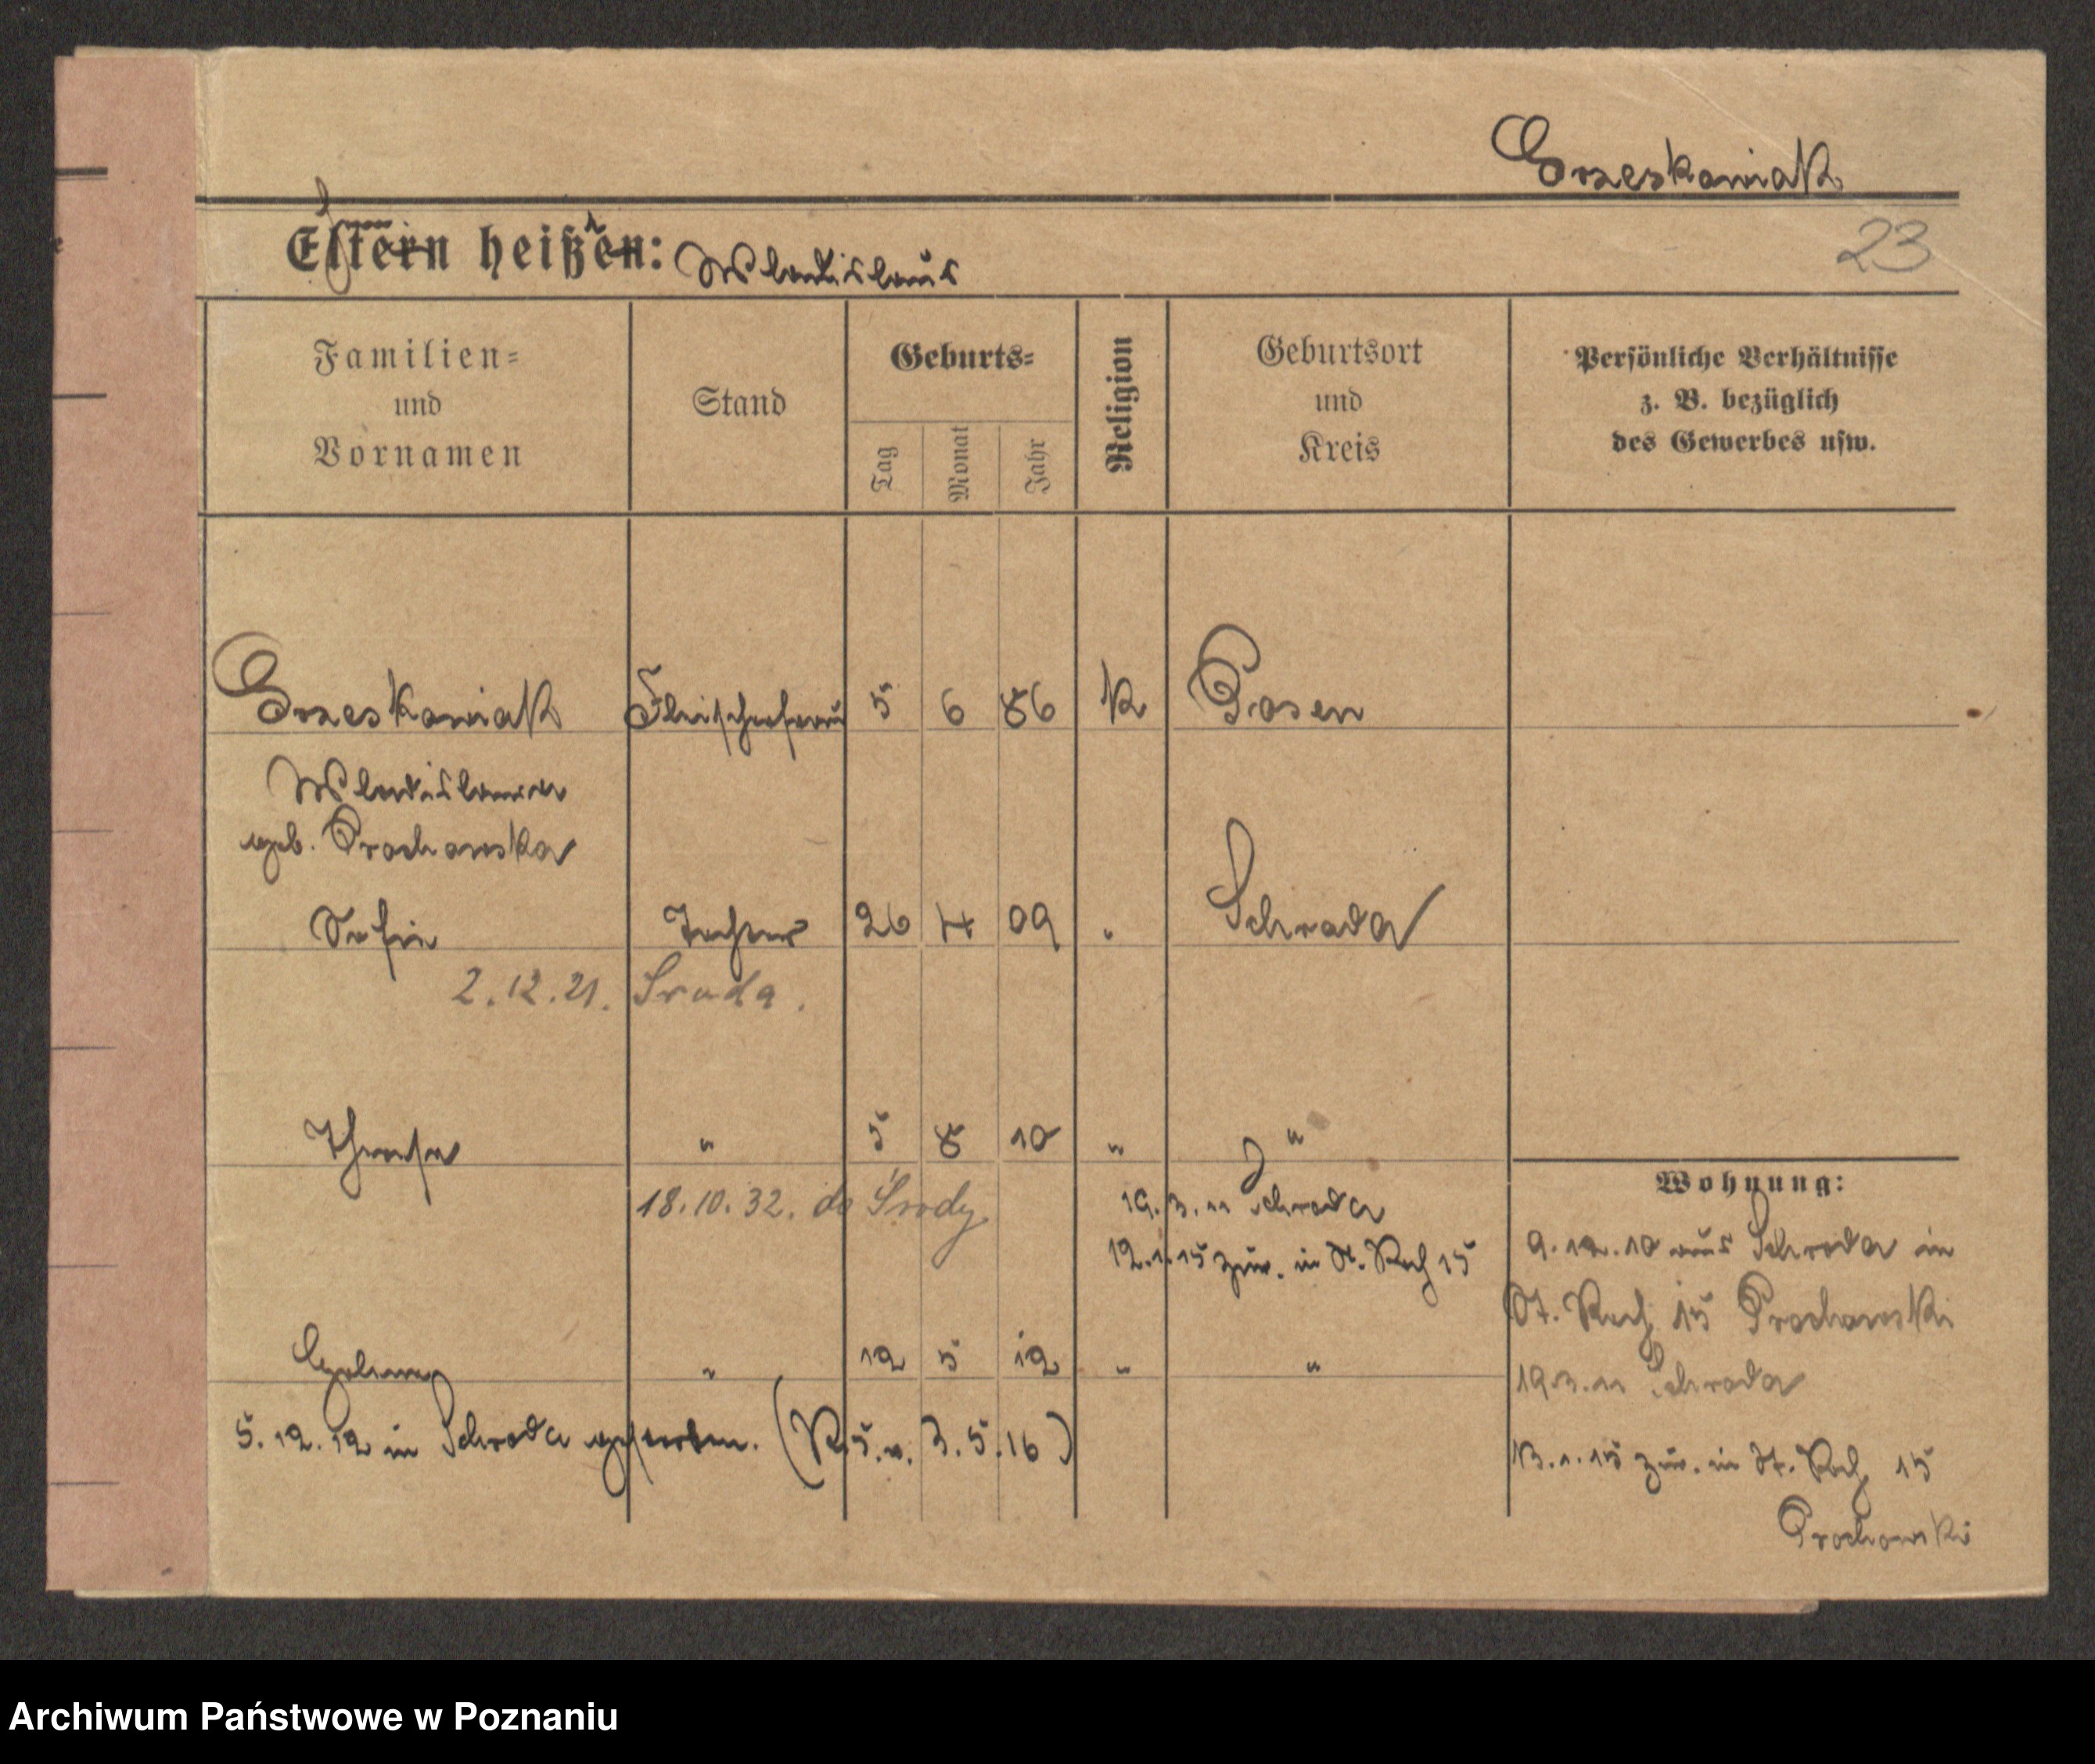 Grzeskowiak
Eltern heißen: Wladislaus
23
Familien-
und
Vornamen
Stand
Geburts-
Tag
Monat
Jahr
Religion
Geburtsort
und
Kreis
Persönliche Verhältnisse
z. B. bezüglich
des Gewerbes usw.
Grzeskowiak Fleischerfrau 5 6 86 K Posen
Wladislawa
geb. Prochowska
Sofie Tochter 26 4 09 " Schroda
2.12.21. Sroda.
Therese " 5 8 10 " "
Wohnung:
18.10.32. do Środy
19.3.11 Schroda
12.1.15 zur. in St. Roch 15
9.12.10 aus Schroda in
St. Roch 15 Prochowski
19.3.11 Schroda
" 12 5 12 " "
5.12.12 in Schroda gestorben. (R. 5. v. 3.5.16)
13.1.15 zur. in St. Roch 15
Prochowski
Archiwum Państwowe w Poznaniu